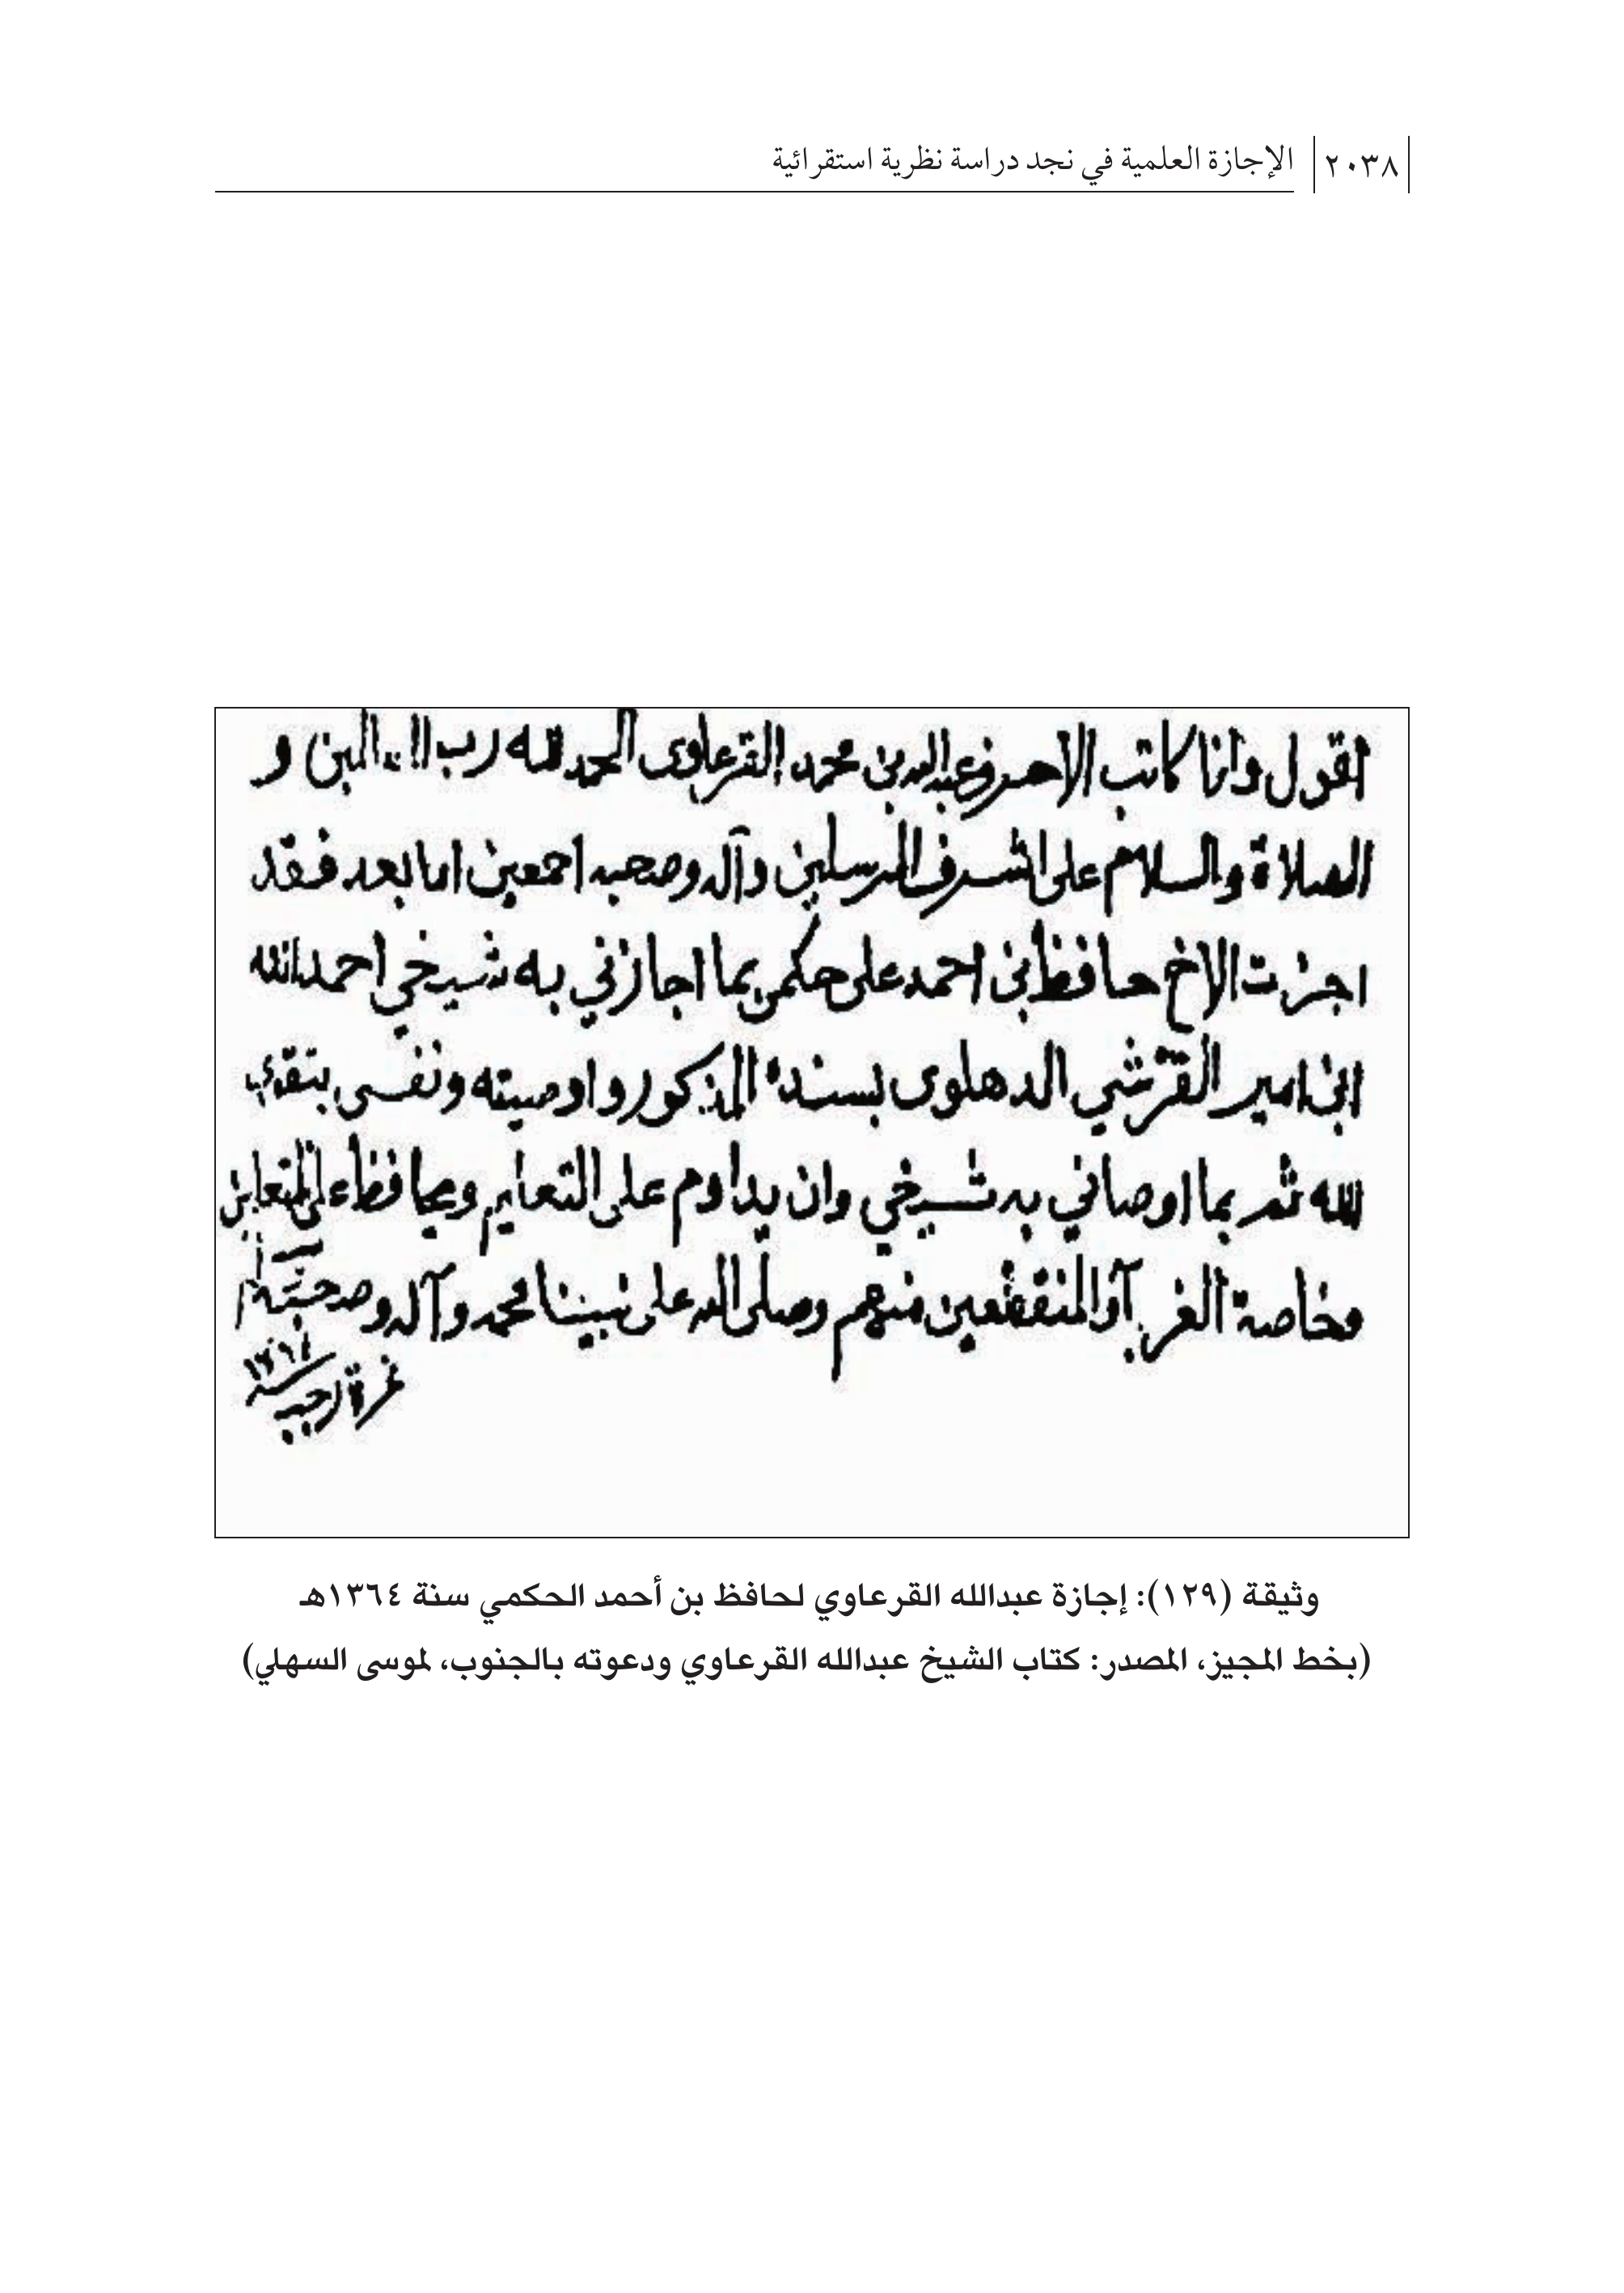 ٢٠٣٨ الإجازة العلمية في نجد دراسة نظرية استقرائية
اقول وانا كاتب الاحرف عبدالله بن محمد القرعاوى الحمد لله رب العالمين و
الصلاة والسلام على اشرف المرسلين وآله وصحبه اجمعين اما بعد فقد
اجزت الاخ حافظ بن احمد على حكمي بما اجازني به شيخي احمد الله
ابن امير القرشي الدهلوى بسنده المذكور واوصيته ونفسى بتقوى
الله ثم بما اوصاني به شيخي وان يداوم على التعليم ويحافظ على المتعلمين
وخاصة الغرباء والمنقطعين منهم وصلى الله على نبينا محمد وآله وصحبه وسلم
غرة رجب سنة ١٣٦٤
وثيقة (١٢٩): إجازة عبدالله القرعاوي لحافظ بن أحمد الحكمي سنة ١٣٦٤هـ
(بخط المجيز، المصدر: كتاب الشيخ عبدالله القرعاوي ودعوته بالجنوب، لموسى السهلي)